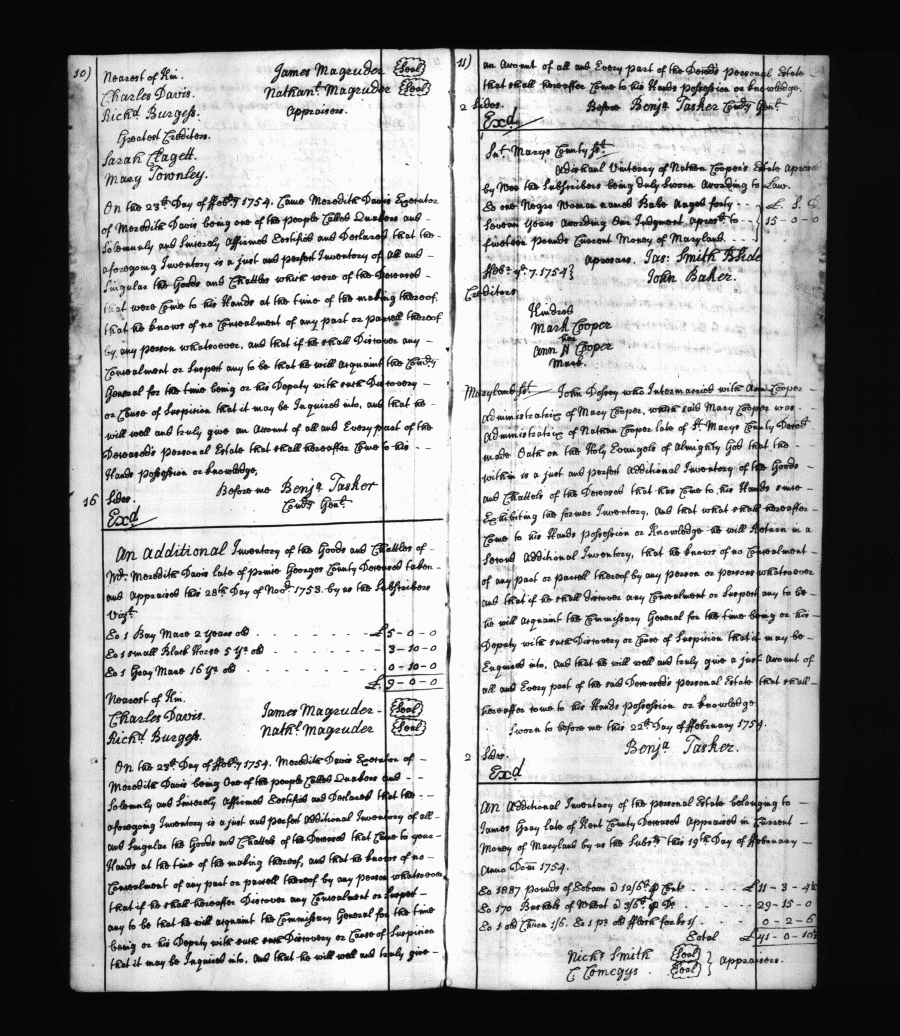 10)
Nearest of Kin. James Magruder (Seal)
Charles Davis. Nathanl. Magruder (Seal)
Richd. Burgess. Appraisers.
Greatest Creditors.
Sarah Clagett.
Mary Townley.
On the 23th Day of ffeby 1754. Came Meredith Davis Executor
of Meredith Davis being one of the people Called Quakers and -
Solemnly and Sincerely Affirmed Testified and Declared that the -
aforegoing Inventory is a just and perfect Inventory of all and -
Singular the Goods and Chattles which were of the Deceased -
that were Come to his Hands at the time of the making thereof.
that he knows of no Concealment of any part or parcell thereof
by any person whatsoever, and that if he shall Discover any -
Concealment or Suspect any to be that he will acquaint the Comry
General for the time being or his Deputy with such Discovery -
or Cause of Suspicion that it may be Inquired into, and that he -
will well and truly give an Account of all and Every part of the
Deceased's Personal Estate that shall hereafter Come to his - -
Hands Possession or knowledge,
16 Sides. Before me Benja. Tasker
Comry Genl.
Exd
An Additional Inventory of the Goods and Chattles of -
Meredith Davis late of Prince Georges County Deceased taken -
and Appraised this 28th Day of Novr. 1753. by us the Subscribers
Vizt
To 1 Bay Mare 2 years old . - - - - - £5-0-0
To 1 small Black Horse 5 yrs old - - - - - 3-10-0
To 1 Gray Mare 16 yrs old - - - - - 0-10-0
£ 9-0-0
Nearest of Kin.
Charles Davis. James Magruder - (Seal)
Richd Burgess. Nathl. Magruder (Seal)
On the 23th Day of ffeby 1754. Meredith Davis Executor of -
Meredith Davis being One of the people Called Quakers and - -
Solemnly and Sincerely Affirmed Testified and Declared that the - -
aforegoing Inventory is a just and perfect Additional Inventory of all -
and Singular the Goods and Chattels of the Deceased that Came to your -
Hands at the time of the making thereof, and that he knows of no -
Concealment of any part or parcell thereof by any person whatsoever
that if he shall hereafter Discover any Concealment or Suspect -
any to be that he will acquaint the Commissary General for the time
being or his Deputy with such Discovery or Cause of Suspicion
that it may be Inquired into, and that he will well and truly give -
11)
an Account of all and Every part of the Deceds Personal Estate
that shall hereafter Come to his Hands Possession or knowledge.
2 Sides. Before Benja. Tasker Comry Genl.
Exd
St. Marys County Sct
Additional Inventory of Nathan Cooper's Estate Apraised
by Wee the Subscribers being duly Sworn According to Law.
To one Negro Woman named Babo Aeged forty - - £. S. D
Seveen Years According Our Judgment Apraisd to - - 15-0-0
fiveteen Pounds Current Money of Maryland - - - -
Apraisers. Jas: Smith
ffebr. ye. 7. 1754} John Baker.
Creditors
Kindred
Mark Cooper
her
Ann N Cooper
Mark.
Maryland Sct John Dossey who Intermarried with Ann Cooper -
Administratrix of Mary Cooper, which said Mary Cooper was -
Administratrix of Nathan Cooper late of St. Marys County Deced
made Oath on the Holy Evangels of Almighty God that the -
within is a just and perfect Additional Inventory of the Goods -
and Chattels of the Deceased that has Come to his Hands since -
Exhibiting the former Inventory, And that what shall hereafter -
Come to his Hands Possession or Knowledge he will Return in a
Second Additional Inventory, that he knows of no Concealment -
of any part or parcell thereof by any person or persons whatsoever
and that if he shall discover any Concealment or Suspect any to be -
he will acquaint the Commissary General for the time being or his -
Deputy with such Discovery or Cause of Suspicion that it may be -
Enquired into, And that he will well and truly give a just Account of
all and Every part of the said Deceased's Personal Estate that shall -
hereafter come to his Hands Possession or knowledge
Sworn to before me this 22th Day of ffebruary 1754.
Benja. Tasker.
2 Sides.
Exd
An Additional Inventary of the personal Estate belonging to -
James Gray late of Kent County Deceased Appraised in Current -
Money of Maryland by us the Subsrs this 19th Day of ffebruary -
Anno Dom 1754.
To 1887 Pounds of Tobacco @ 12/6d ⅌ Cent . - - - - £11-3-4½
To 170 Bushels of Wheat @ 3/6d ⅌ Do - - - - 29-15-0
0-2-6
Total £41-0-10½
Nichs Smith (Seal)
C Comegys . (Seal) } Appraisers.